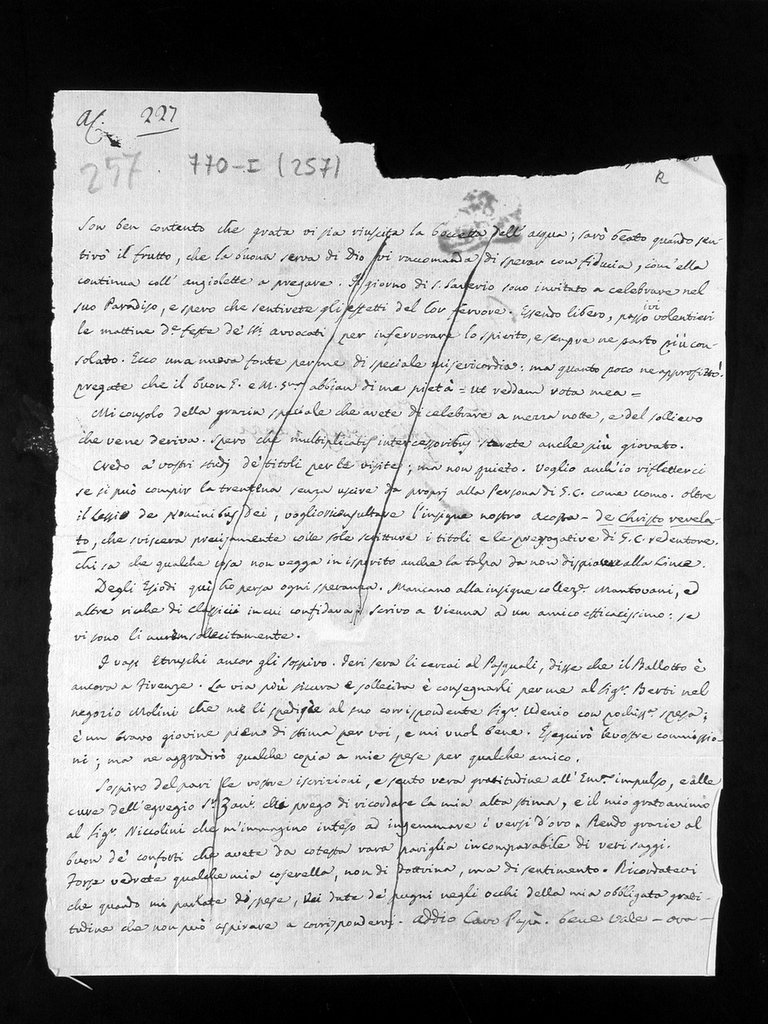 227
257. 770-I (257)
R
Son ben contento che grata vi sia riuscita la boccetta dell' acqua; sarò beato quando sen-
tirò il frutto, che la buona serva di Dio vi raccomanda di sperar con fiducia, com' ella
continua coll' angiolette a pregare. Il giorno di S. Saverio sono invitato a celebrare nel
suo Paradiso, e spero che sentirete gli effetti del Cor fervore. Essendo libero, passo ivi volentieri
le mattine de feste de' SS. avvocati, per infervorare lo spirito, e sempre ne parto più con-
solato. Ecco una nuova fonte per me di speciale misericordia: ma quanto poco ne approfitto!
pregate che il buon G. e M. abbian di me pietà = ut reddam vota mea =
Mi consolo della grazia speciale che avete di celebrare a mezza notte, e del sollievo
che vene deriva. Spero che multiplicatis intercessoribus sarete anche più giovato.
Credo a' vostri studj de' titoli per le visite; ma non quieto. Voglio anch' io rifletterci
se si può compir la trentina senza uscire da proprj alla Persona di G.C. come uomo. oltre
il Lessio de Nominibus Dei, voglio consultare l'insigne nostro Acosta - de Christo revela-
to, che viscera precisamente colle sole scritture i titoli e le prerogative di G.C. redentore.
chi sa che qualche cosa non vegga in ispirito anche la talpa da non dispiacere alla Lince.
Degli Esiodi qui ho persa ogni speranza. Mancano alla insigne collez. Mantovani, ed
altre ricche di classici in cui confidava. Scrivo a Vienna ad un amico efficacissimo: se
vi sono li avrem sollecitamente.
I vasi Etruschi ancor gli sospiro. Ieri sera li cercai al Pasquali, disse che il Ballotto è
ancora a Firenze. La via più sicura e sollecita è consegnarli per me al Sig. Berti nel
negozio Molini che me li spedisce al suo corrispondente Sig. Udenio con pochiss. spesa;
è un bravo giovine pien di stima per voi, e mi vuol bene. Eseguirò le vostre commissio-
ni; ma ne aggradirò qualche copia a mie spese per qualche amico.
Sospiro del pari le vostre iscrizioni, e sento vera gratitudine all' Em. impulso, e alle
cure dell' egregio S. Zan. che prego di ricordare la mia alta stima, e il mio grato animo
al Sig. Niccolini che m'immagino inteso ad ingemmare i versi d'oro. Rendo grazie al
buon de' conforti che avete da cotesta rara pariglia incomparabile di veri saggi.
Forse vedrete qualche mia coserella, non di dottrina, ma di sentimento. Ricordatevi
che quando mi parlate di spese, voi date de' pugni negli occhi della mia obbligata grati-
tudine che non può aspirare a corrispondervi. Addio Caro Papà. bene vale - ora -